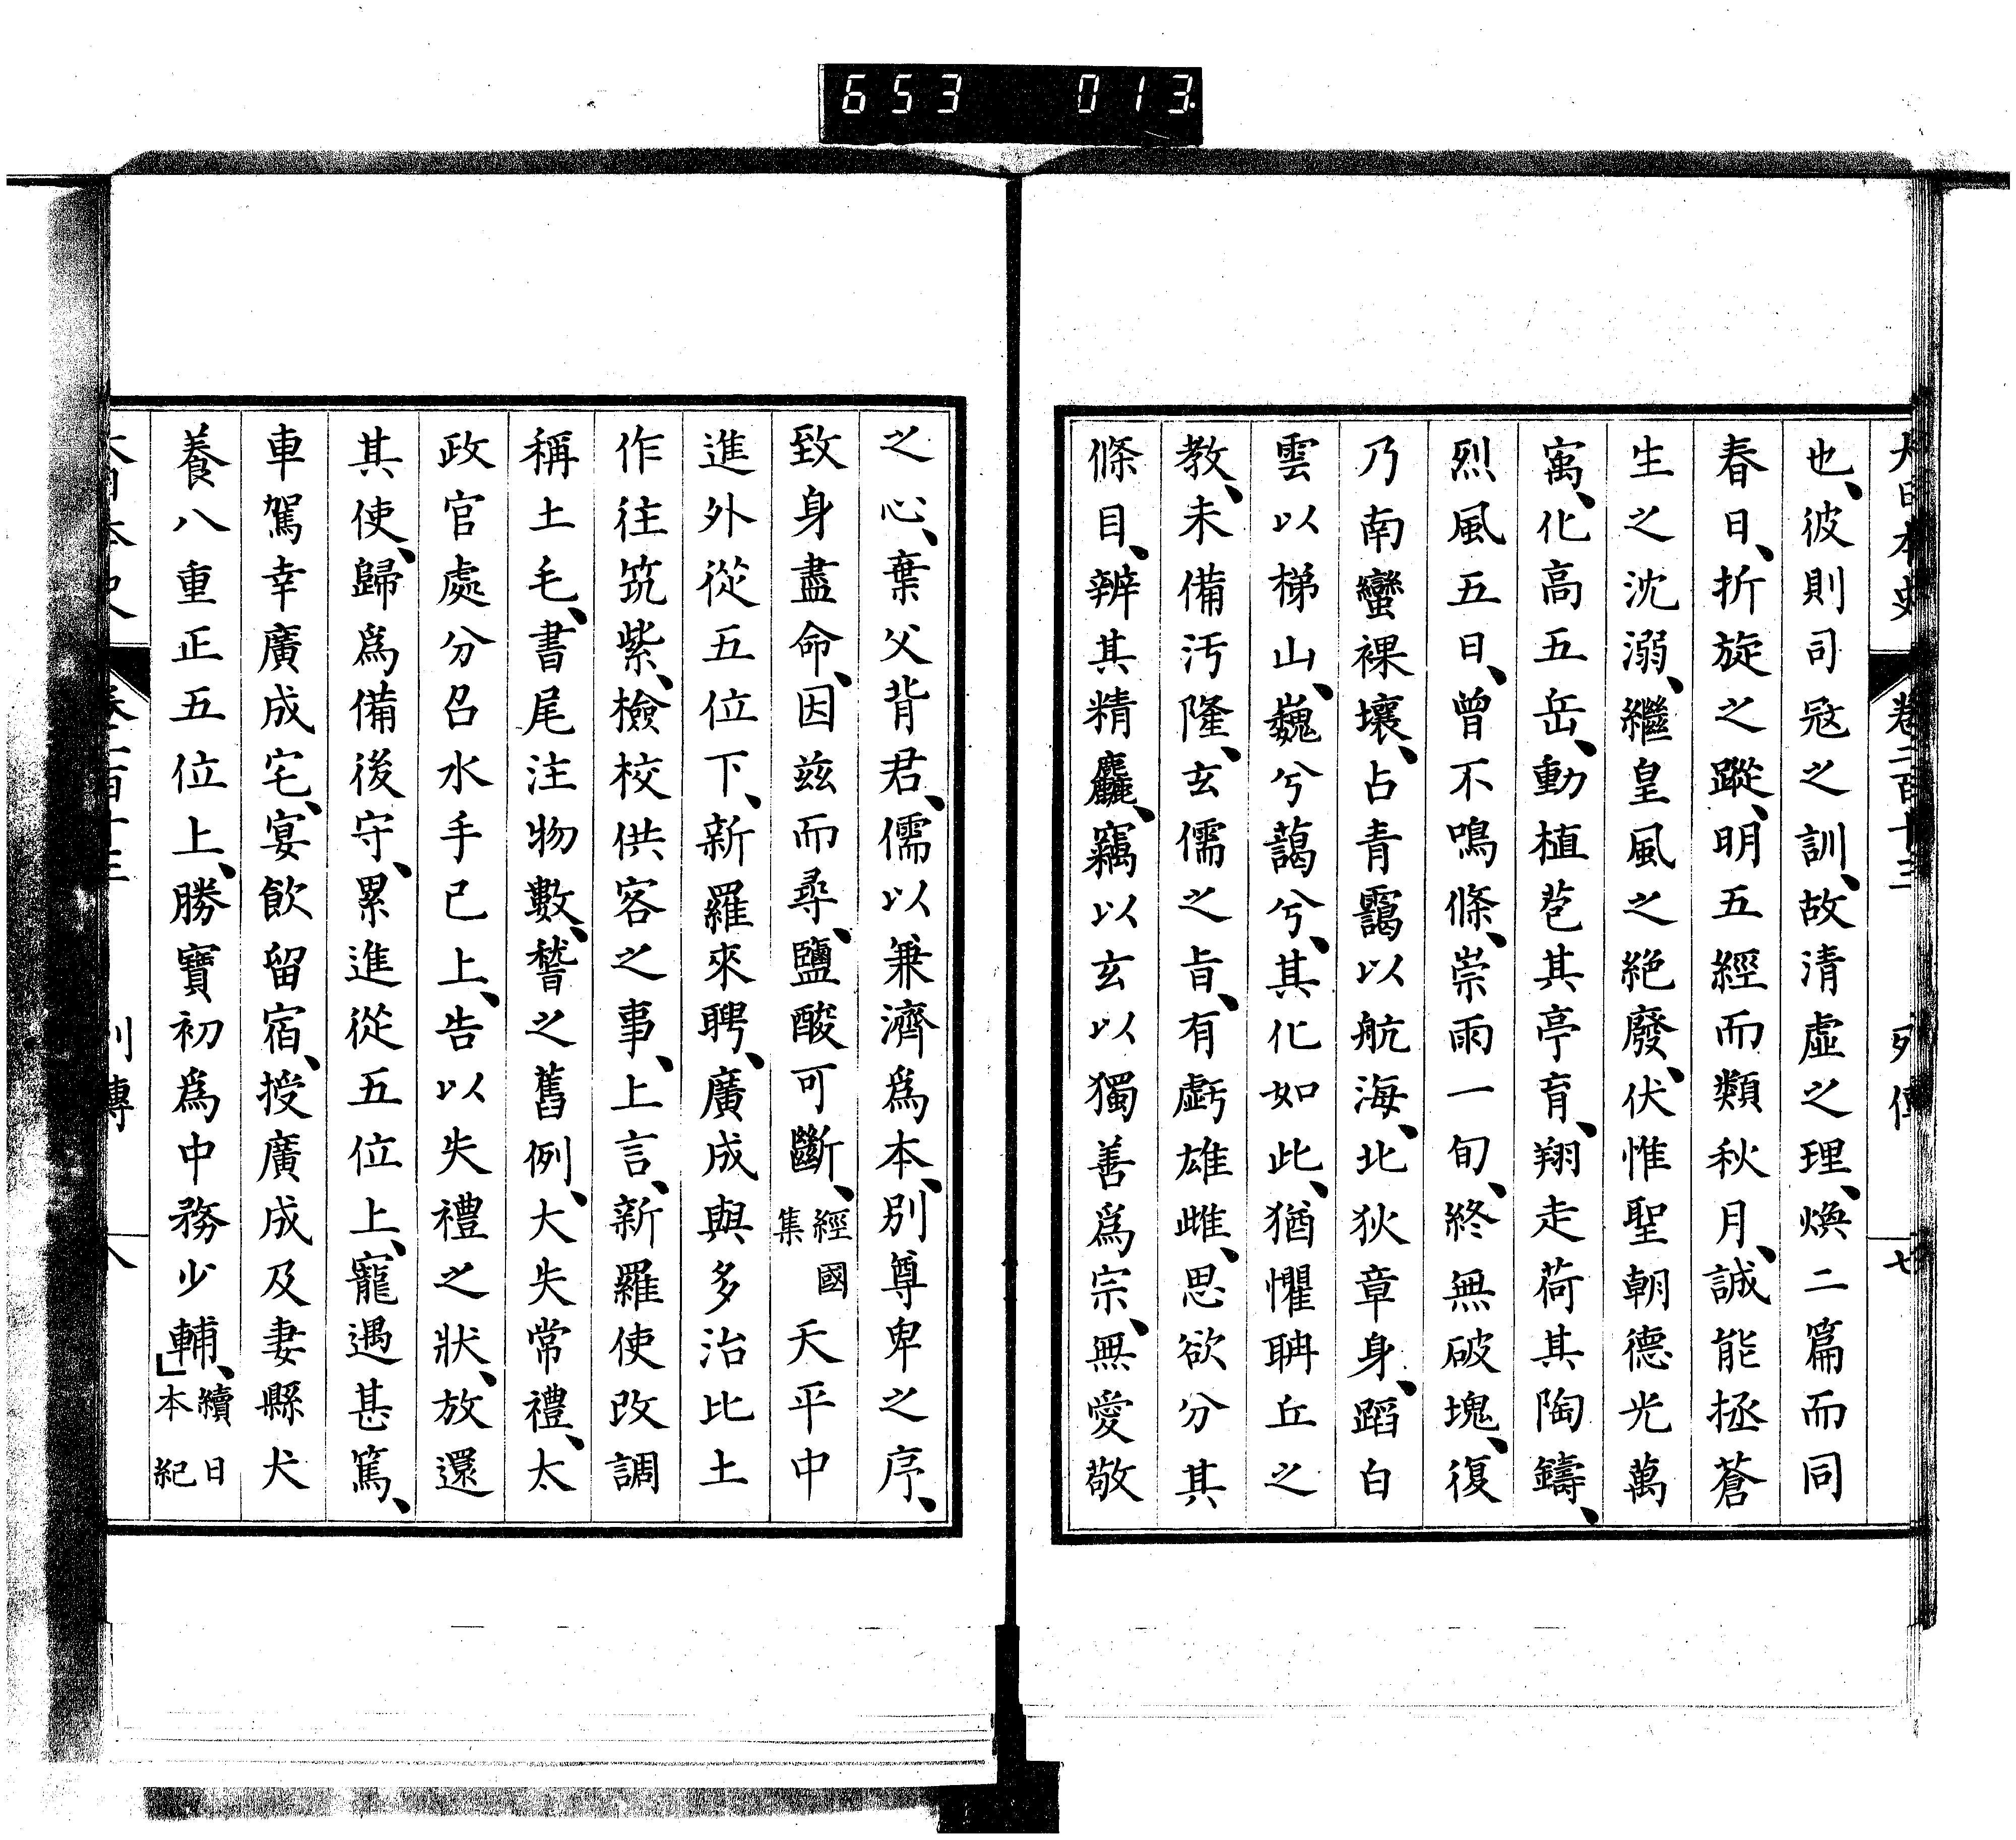 653 013
大日本史 卷二百十三 列傳 七
也、彼則司冦之訓、故清虛之理、煥二篇而同
春日、折旋之蹤、明五經而類秋月、誠能拯蒼
生之沈溺、繼皇風之絕廢、伏惟聖朝德光萬
寓、化高五岳、動植苞其亭育、翔走荷其陶鑄、
烈風五日、曾不鳴條、崇雨一旬、終無破塊、復
乃南蠻裸壤、占青靄以航海、北狄章身、蹈白
雲以梯山、巍兮藹兮、其化如此、猶懼聃丘之
教、未備汚隆、玄儒之旨、有虧雄雌、思欲分其
條目、辨其精麤、竊以玄以獨善爲宗、無愛敬
之心、棄父背君、儒以兼濟爲本、別尊卑之序、
致身盡命、因茲而尋、鹽酸可斷、經國集 天平中
進外從五位下、新羅來聘、廣成與多治比土
作往筑紫、檢校供客之事、上言、新羅使改調
稱土毛、書尾注物數、稽之舊例、大失常禮、太
政官處分召水手已上、告以失禮之狀、放還
其使、歸爲備後守、累進從五位上、寵遇甚篤、
車駕幸廣成宅、宴飮留宿、授廣成及妻縣犬
養八重正五位上、勝寶初爲中務少輔、」續日本紀
大日本史 卷二百十三 列傳 八